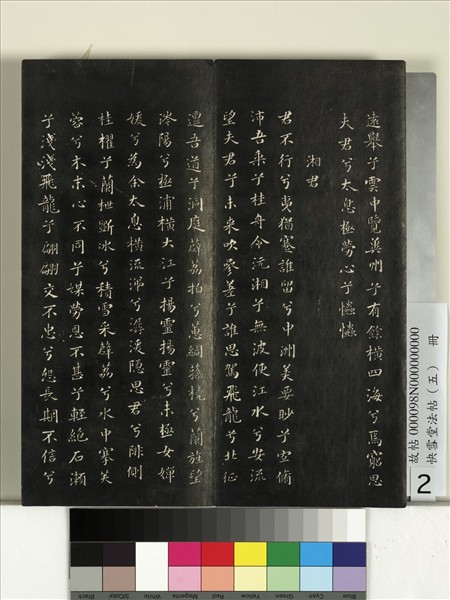 遠舉兮雲中覽冀州兮有餘橫四海兮焉窮思
夫君兮太息極勞心兮忡忡
湘君
君不行兮夷猶蹇誰留兮中洲美要眇兮宜脩
沛吾乘兮桂舟令沅湘兮無波使江水兮安流
望夫君兮未來吹參差兮誰思駕飛龍兮北征
邅吾道兮洞庭薜荔拍兮蕙綢蓀橈兮蘭旌望
涔陽兮極浦橫大江兮揚靈揚靈兮未極女嬋
媛兮為余太息橫流涕兮潺湲隱思君兮陫側
桂櫂兮蘭枻斲冰兮積雪采薜荔兮水中搴芙
蓉兮木末心不同兮媒勞恩不甚兮輕絕石瀨
兮淺淺飛龍兮翩翩交不忠兮怨長期不信兮
故帖000098N000000000
快雪堂法帖(五) 冊
2
Blue
Cyan
Green
Yellow
Red
Magenta
White
3/Color
Black